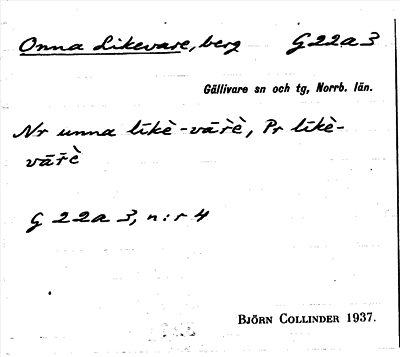 Onna Likevare, berg G22a3
Gällivare sn och tg, Norrb. län.
Nr unna līkè-vāřè, Pr līkè-
vāřè
G 22a 3, n:r 4
BJÖRN COLLINDER 1937.